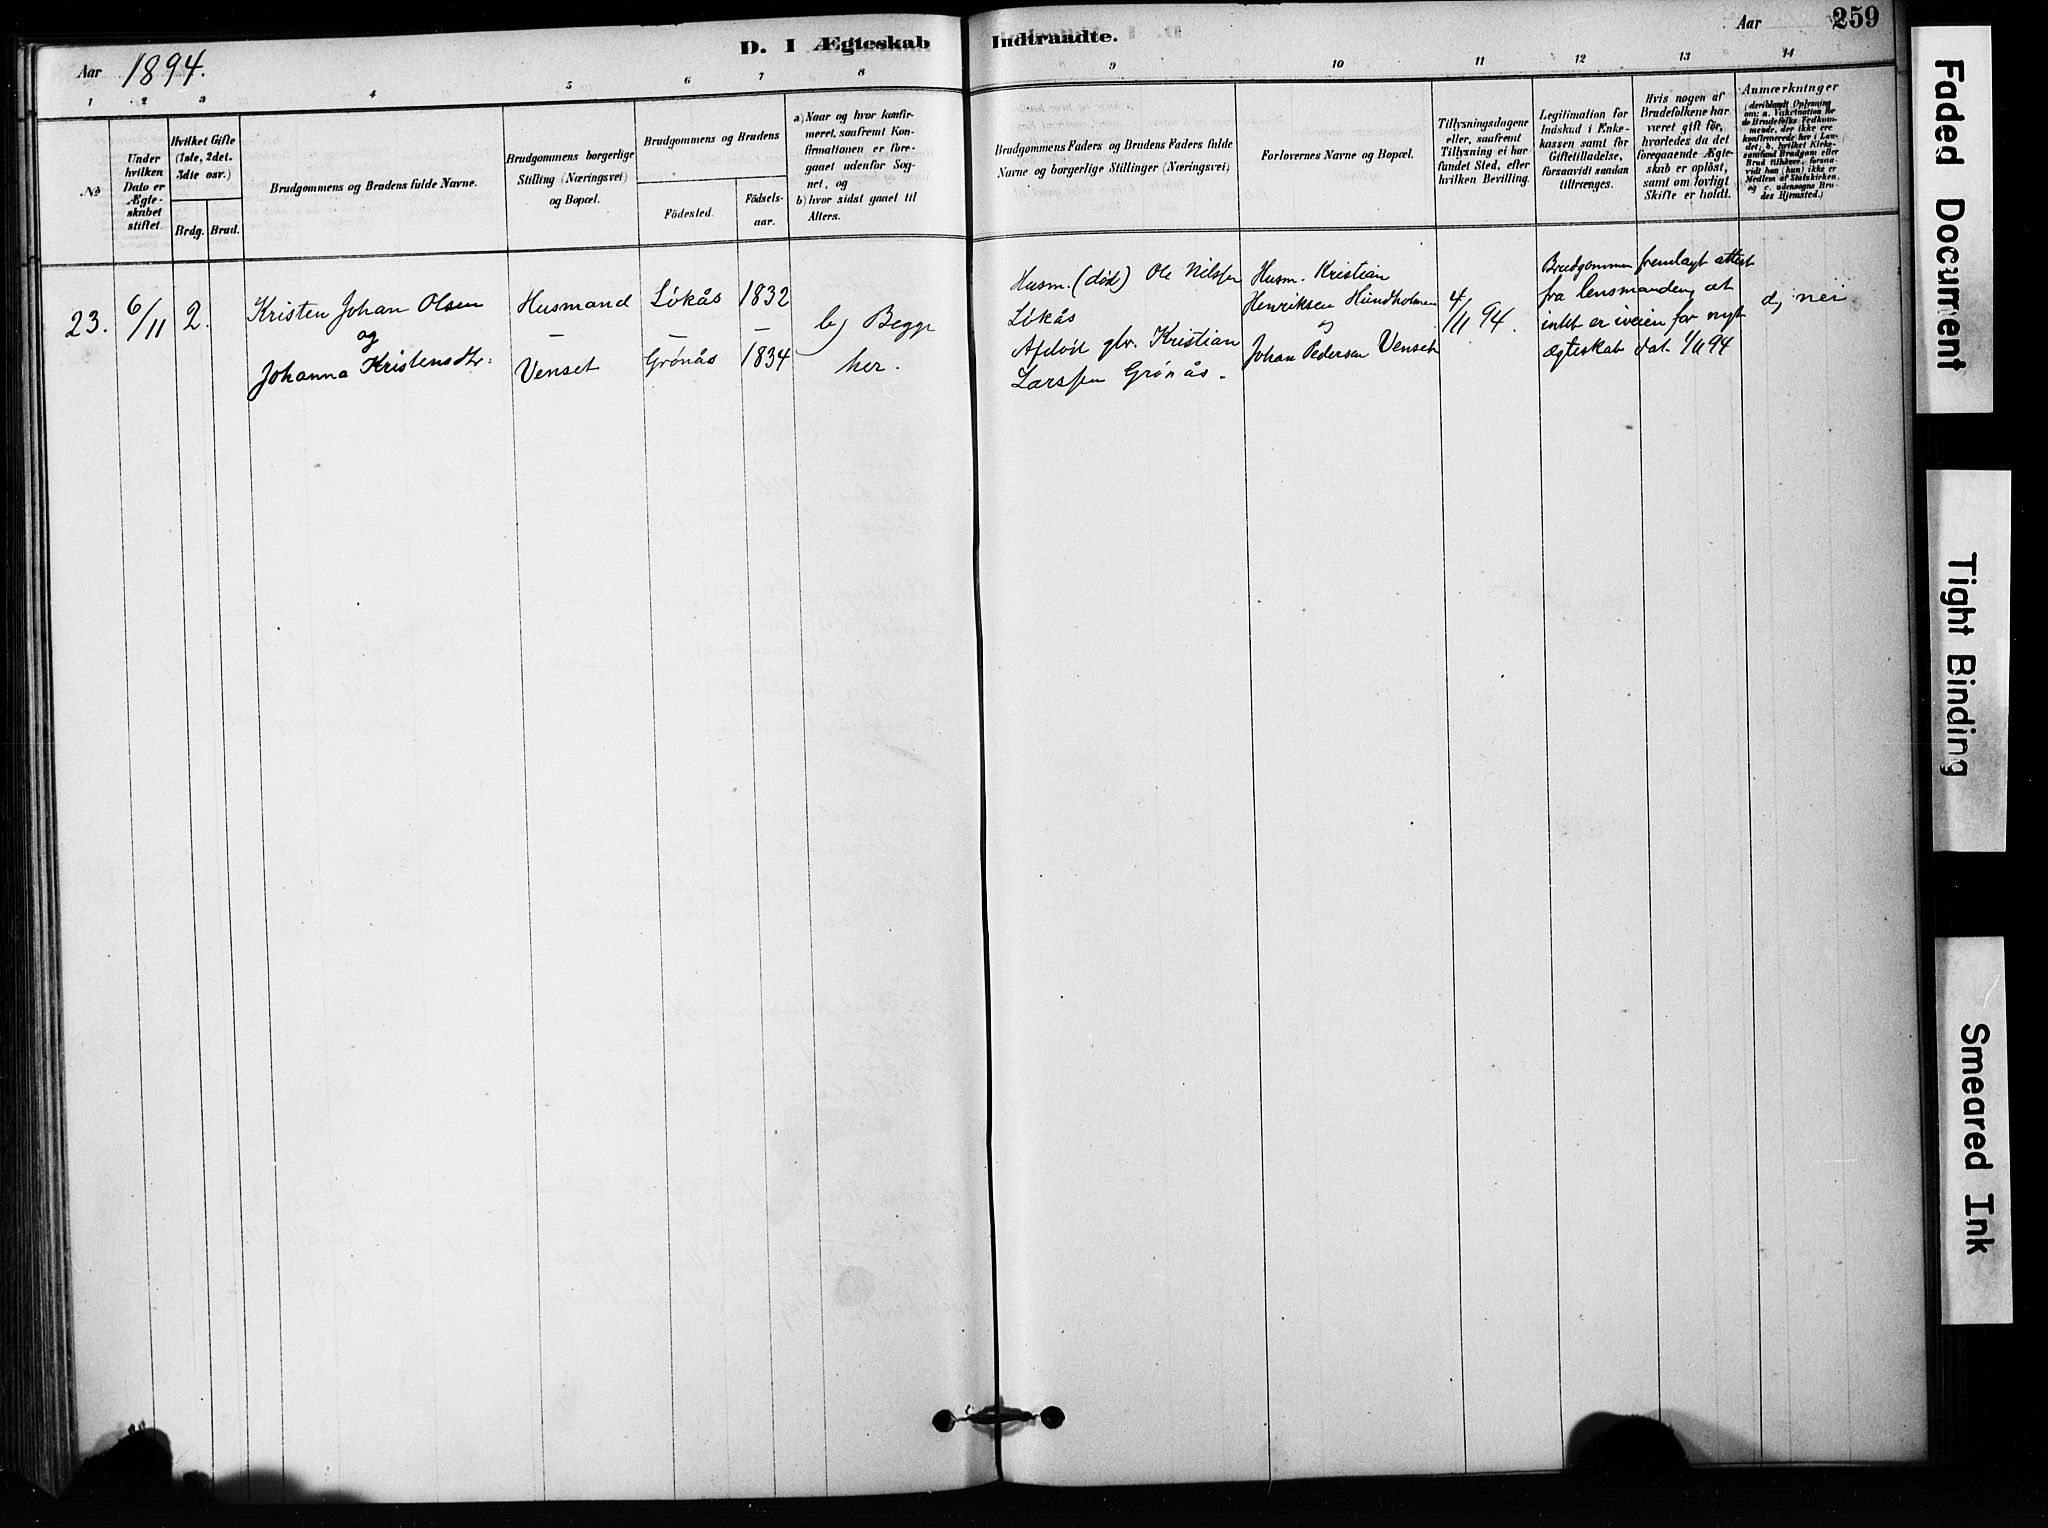 D. I Ægteskab Indtraadte.
Aar 1894.
Aar
259
1 2 3 4 5 6 7 8 9 10 11 12 13 14
No
Under
hvilken
Dato er
Ægte-
skabet
stiftet.
Hvilket Gifte
(1ste, 2det.
3die osv.)
Brdg. Brud.
Brudgommens og Brudens fulde Navne.
Brudgommens borgerlige
Stilling (Næringsvei)
og Bopæl.
Brudgommens og Brudens
Födested.
Födsels-
aar.
a) Naar og hvor konfir-
meret, saafremt Kon-
firmationen er fore-
gaaet udenfor Sog-
net, og
b) hvor sidst gaaet til
Alters.
Brudgommens Faders og Brudens Faders fulde
Navne og borgerlige Stillinger (Næringsvei)
Forlovernes Navne og Bopæl.
Tillysningsdagene
eller, saafremt
Tillysning ei har
fundet Sted, efter
hvilken Bevilling.
Legitimation for
Indskud i Enke-
kassen samt for
Giftetilladelse,
forsaavidt saadan
tiltrænges.
Hvis nogen af
Brudefolkene har
været gift för,
hvorledes da det
foregaaende Ægte-
skab er oplöst,
samt om lovligt
Skifte er holdt.
Anmærkninger
(deriblandt Oplysning
om: a. Vakcination for
de Brudefolks Vedkom-
mende, der ikke ere
konfirmerede her i Lan-
det; b. hvilket Kirke-
samfund Brudgom eller
Brud tilhører, forsaa-
vidt han (hun) ikke er
Medlem af Statskirken,
og c. udensogns Bru-
des Hjemsted.)
23.
6/11
2.
Kristen Johan Olsen
og
Johanna Kristensdtr.
Husmand
–
Venset
Løkås
–
Grønås
1832
–
1834
b) Begge
her.
Husm. (død) Ole Nilssen
Løkås
Afdød glv. Kristian
Larssen Grønås.
Husm. Kristian
Henriksen Hundholmen
og
Johan Pedersen Venset
4/11 94.
Brudgommen fremlagt attest
fra lensmanden, at
intet er iveien for nyt
ægteskab dat. 1/11 94
d, nei
Faded Document
Tight Binding
Smeared Ink